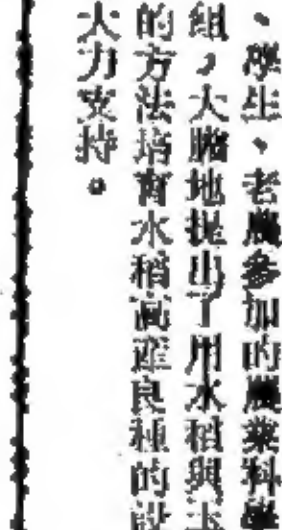 、學生、老農參加的農業科學
組，大膽地提出了用水稻與玉
的方法培育水稻高產良種的設
大力支持。